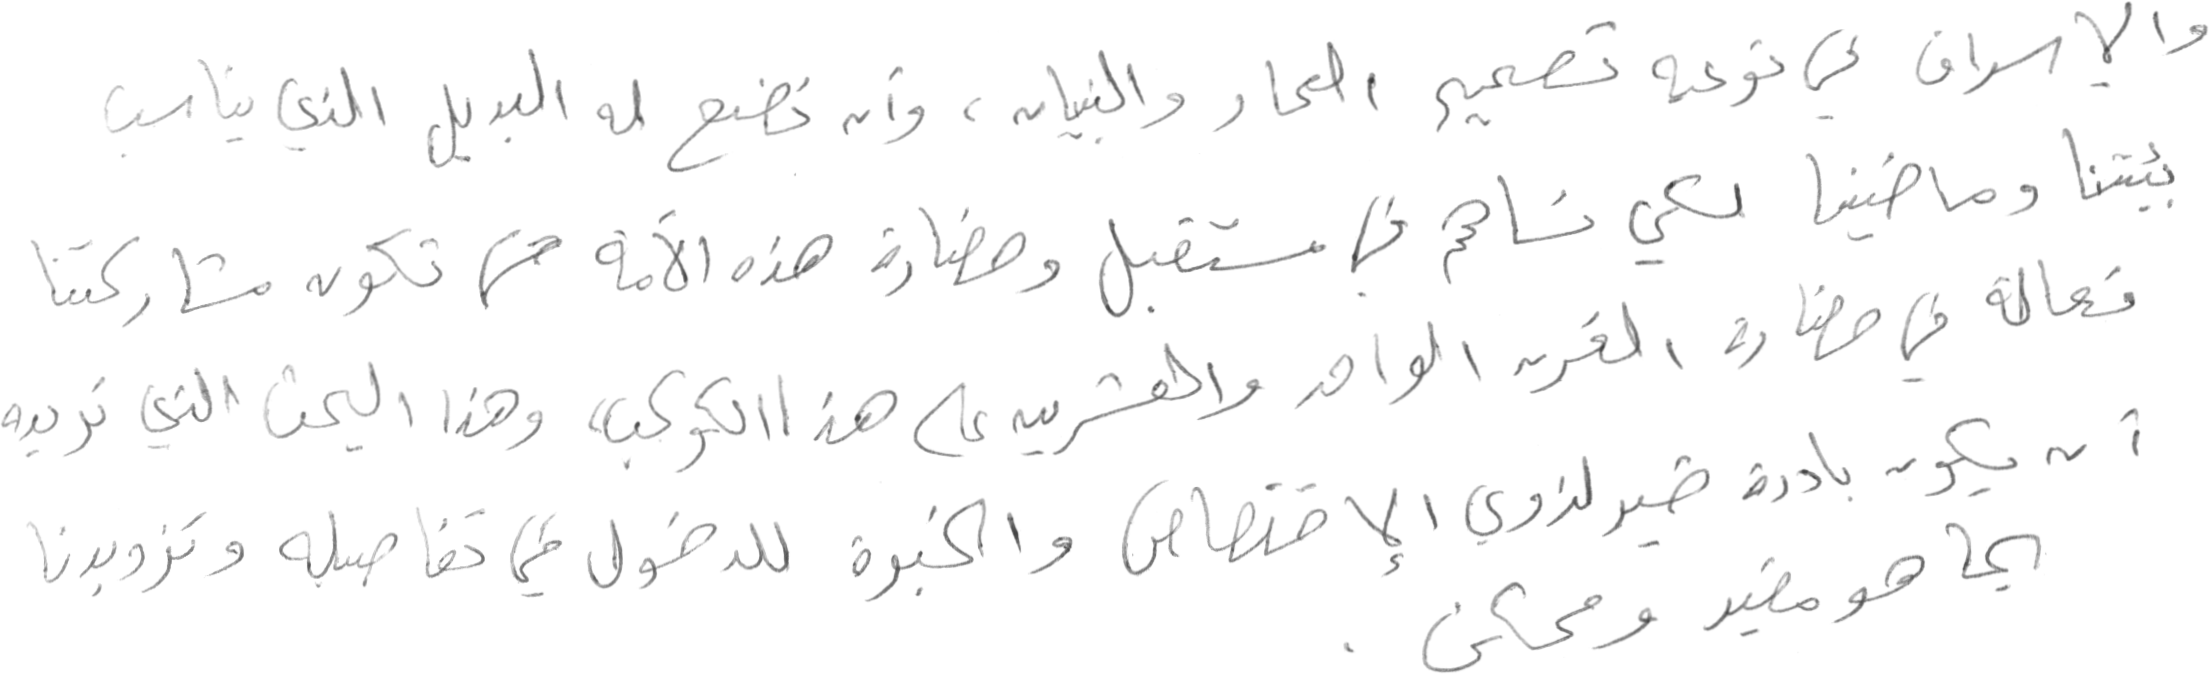 والإسراف في نوعية تصميم المعمار والبنيان، وأن نضع له البديل الذي يناسب
بيئتنا وماضينا لكي نساهم في مستقبل وحضارة هذه الأمة حتى تكون مشاركتنا
فعالة في حضارة القرن الواحد والعشرين على هذا الكوكب، وهذا البحث الذي نريده
أن يكون بادرة خير لذوي الإختصاص والخبرة للدخول في تفاصيله وتزويدنا
بما هو مفيد وممكن .